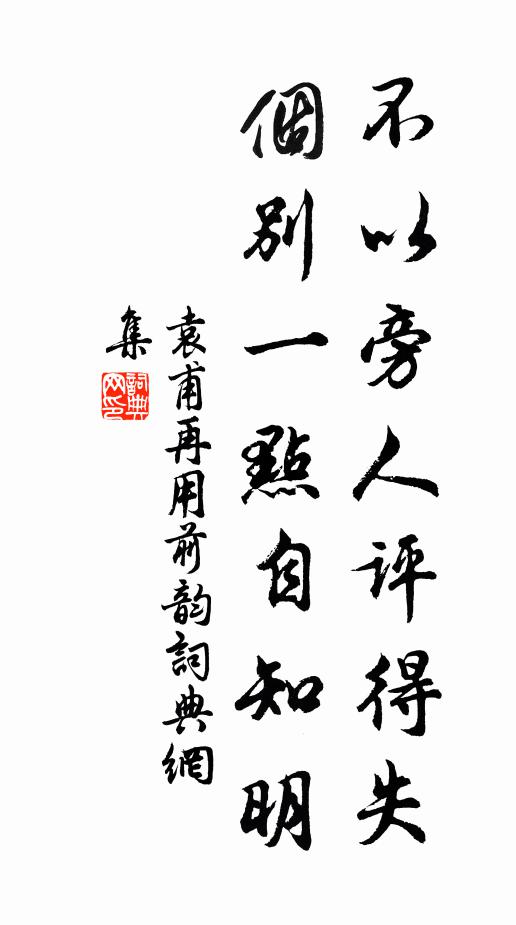 不以旁人評得失
個別一點自知明
袁甫再用前韵詞典網
集
詞典
网印